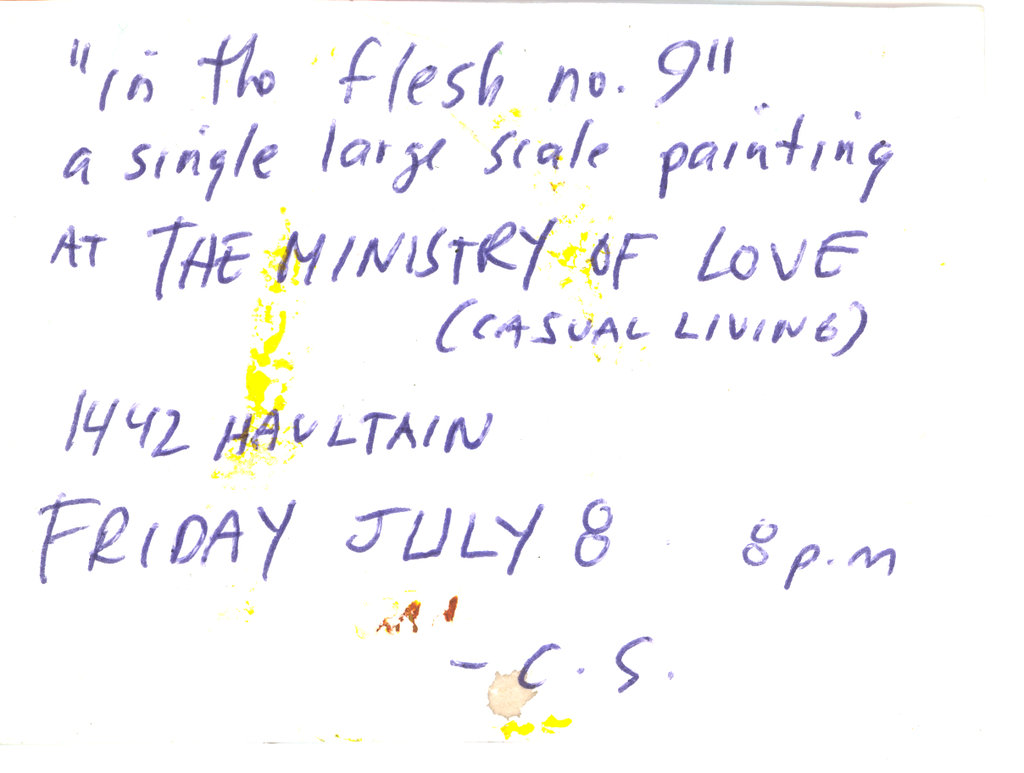 "in the flesh no. 9"
a single large scale painting
AT THE MINISTRY OF LOVE
(CASUAL LIVING)
1442 HAULTAIN
FRIDAY JULY 8 8 p.m
- C. S.